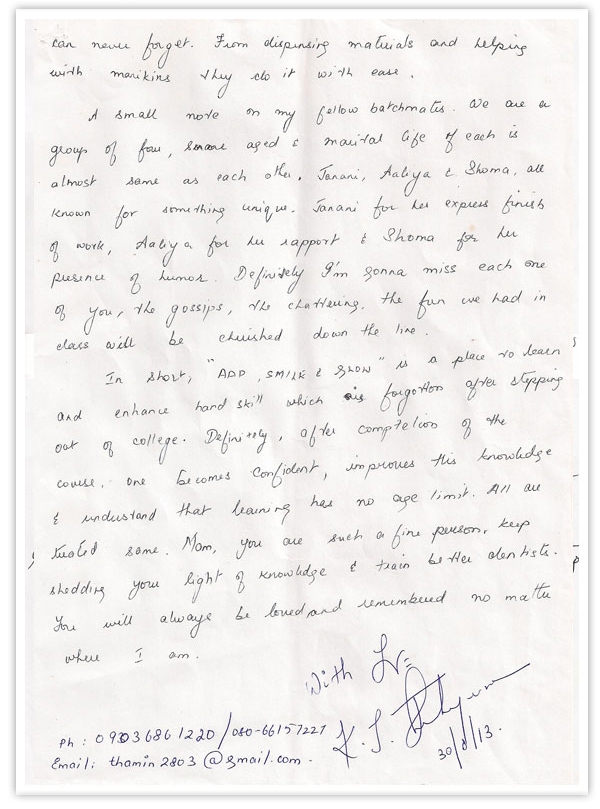 can never forget. From dispensing materials and helping
with manikins they do it with ease.
A small note on my fellow batchmates. We are a
group of four, same aged & marital life of each is
almost same as each other. Janani, Aaliya & Shoma, all
known for something unique. Janani for her express finish
of work, Aaliya for her rapport & Shoma for her
presence of humor. Definitely I'm gonna miss each one
of you, the gossips, the chattering. the fun we had in
class will be cherished down the line.
In short, "ADD, SMILE & GLOW" is a place to learn
and enhance hand skill which is forgotton after stepping
out of college. Definitely, after completion of the
course, one becomes confident, improves this knowledge
& understand that learning has no age limit. All are
treated same. Mam, you are such a fine person, keep
shedding your light of knowledge & train better dentists.
You will always be loved and remembered no matter
where I am.
With
K. J.
30/8/13.
Ph: 09036861220/080-66157227
Email: thamin2803@gmail.com.